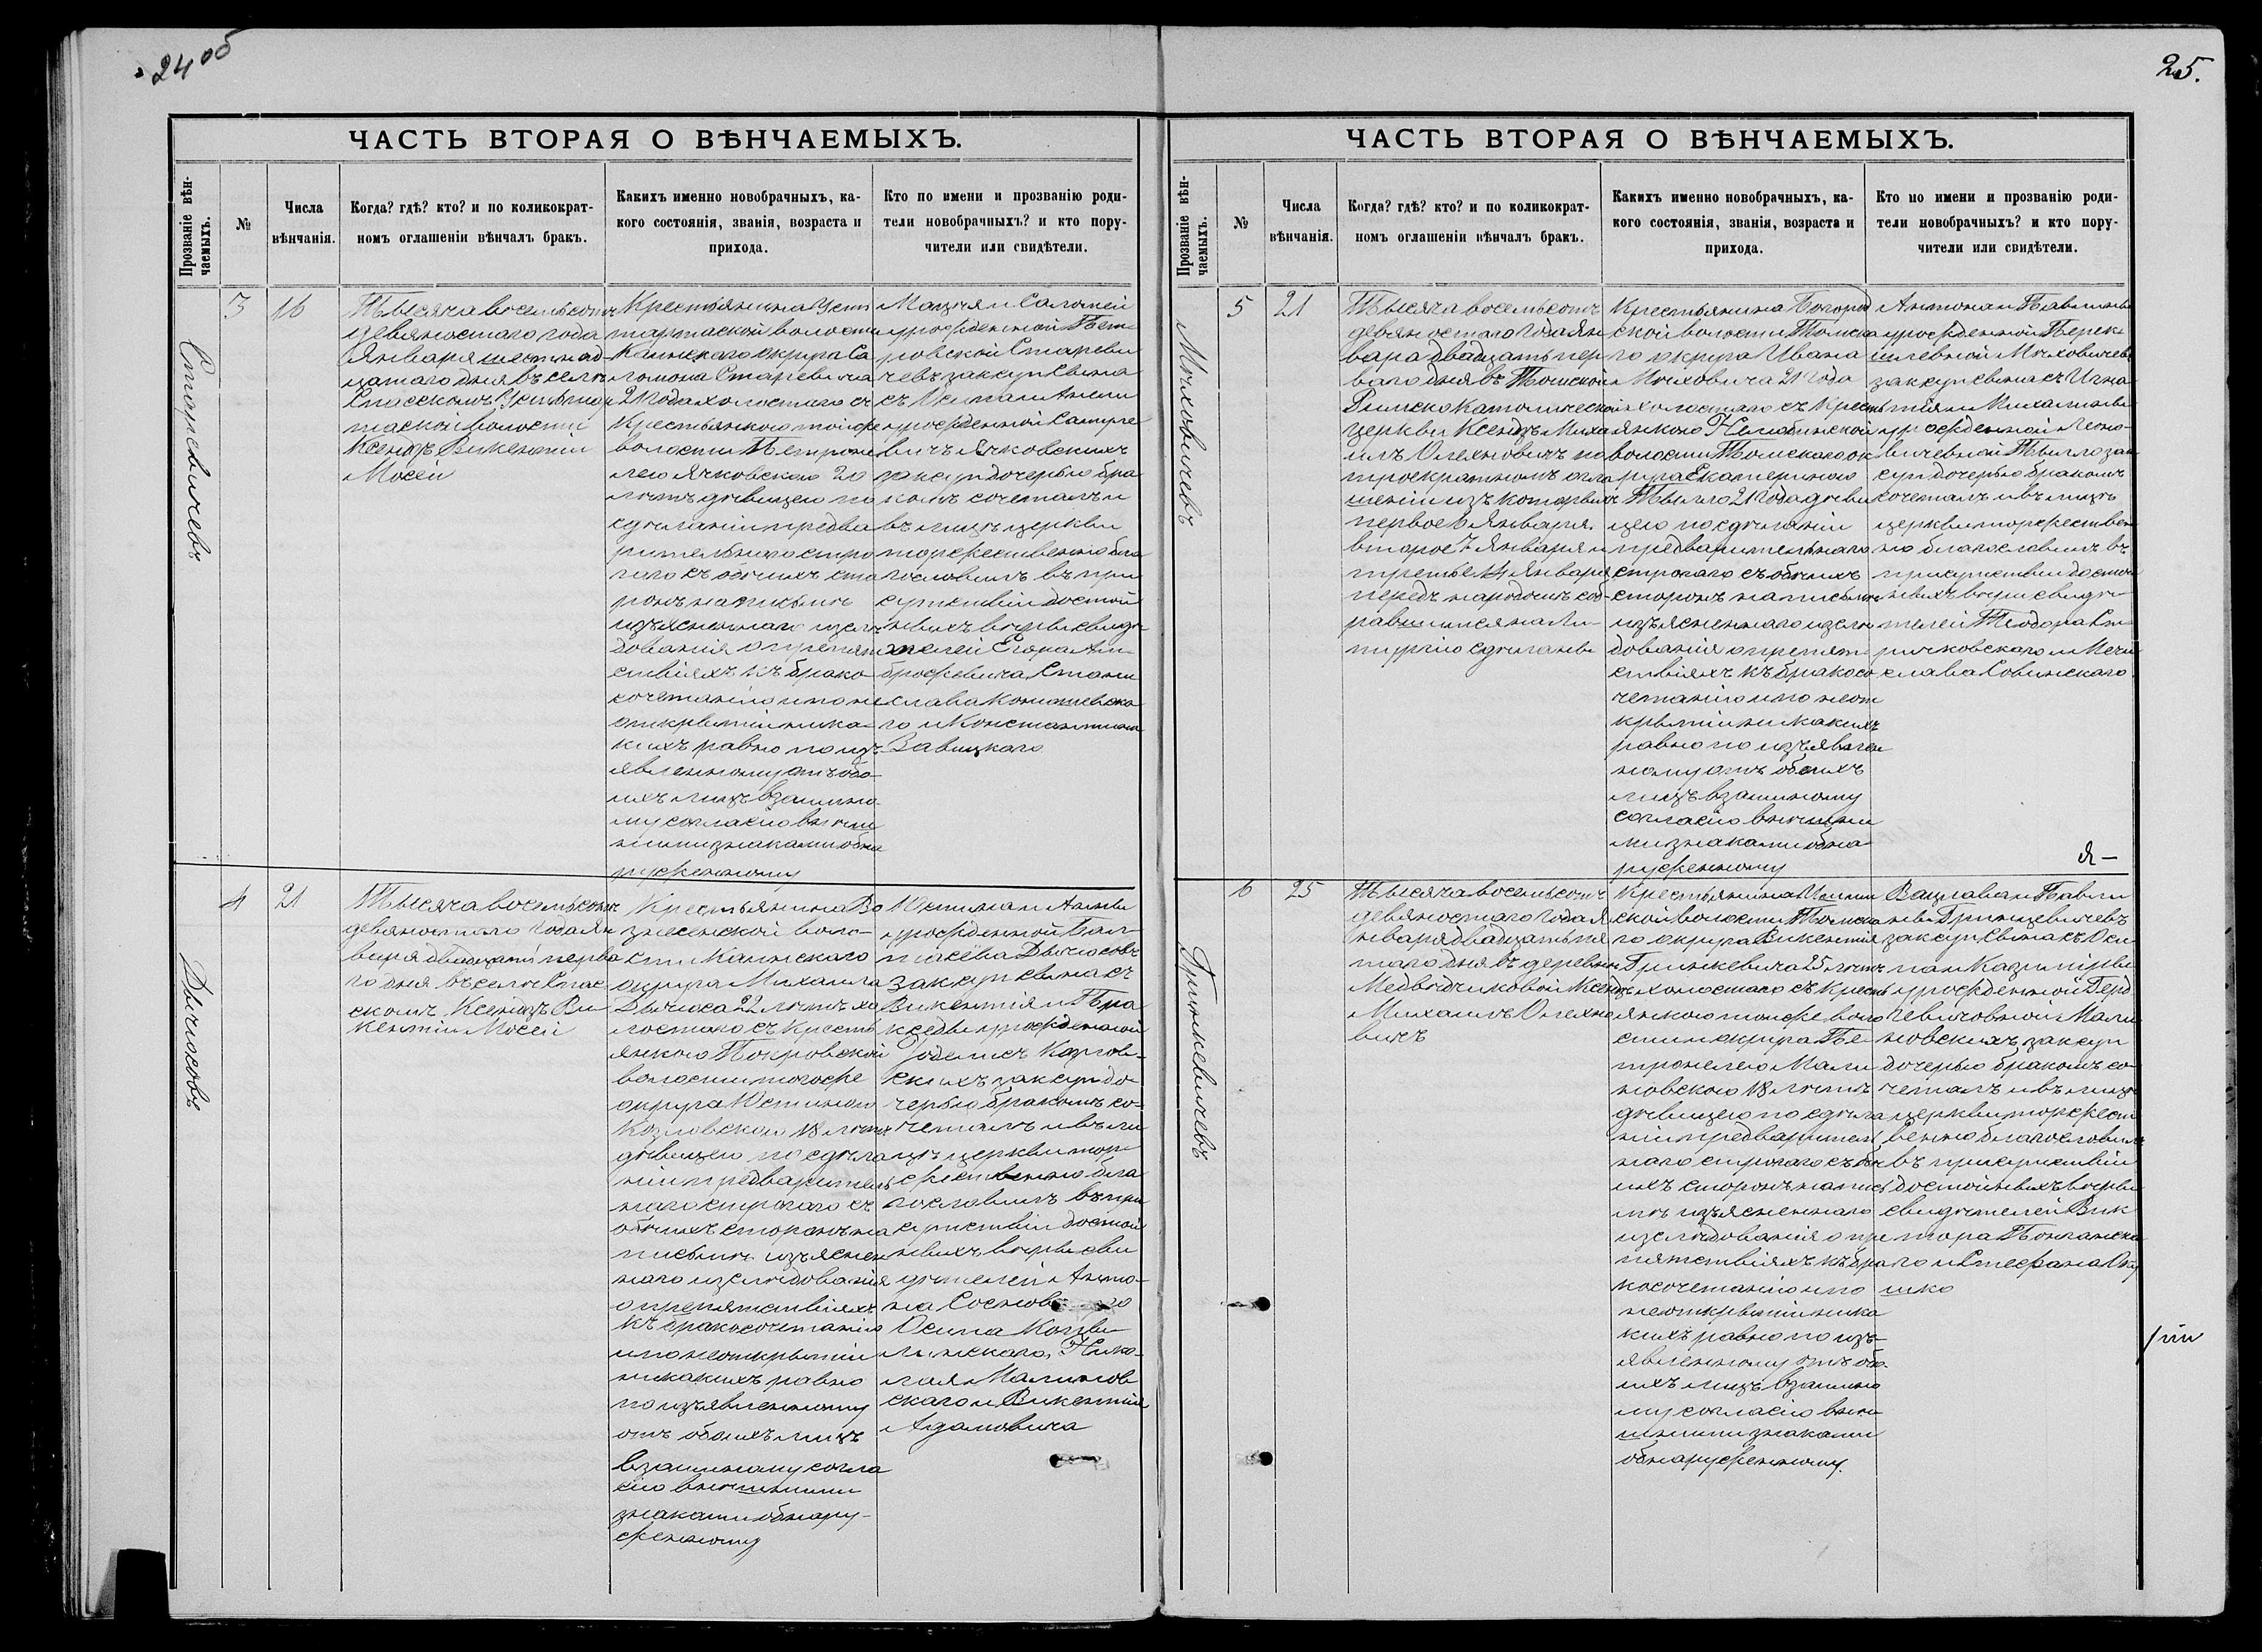 24 об
ЧАСТЬ ВТОРАЯ О ВѢНЧАЕМЫХЪ.
Прозваніе вѣн-
чаемыхъ.
№
Числа
вѣнчанія.
Когда? гдѣ? кто? и по коликократ-
номъ оглашеніи вѣнчалъ бракъ.
Какихъ именно новобрачныхъ, ка-
кого состоянія, званія, возраста и
прихода.
Кто по имени и прозванію роди-
тели новобрачныхъ? и кто пору-
чители или свидѣтели.
Старевичевъ
3
16
Тысяча восемьсотъ
девяностаго года
Января шестнад-
цатаго дня въ селѣ
Спасскомъ Устьтар
таской волости
Ксендзъ Викентій
Мосей
Крестьянина Уст
тартаской волости
Каинскаго округа Са
ломона Старевича
21 года холостаго съ
Крестьянкою тойже
волости Петроне
лею Ячковскою 20
лѣтъ дѣвицею по
сдѣланіи предва
рительнаго стро
гаго съ обѣихъ сто
ронъ на письмѣ
изъясненнаго изслѣ
дованія о препят
ствіяхъ къ брако-
сочетанію и по не
открытіи ника-
кихъ равно по изъ
явленному отъ обо-
ихъ лицъ взаимно-
му согласію внѣш
ними знаками обна
руженному
Мацея и Саломеи
урожденной Пет
ровской Стареви
чевъ законныхъ сына
съ Осипа и Анны
урожденной Сатуле
вичъ Ячковскихъ
законныхъ дочерью бра
комъ сочеталъ и
въ лицѣ церкви
торжественно бла
гословилъ въ при
сутствіи достой
ныхъ вѣры свидѣ
телей Егора Ам
брожевича, Стани
слава Комашевска
го и Константина
Завицкаго
Дычковъ
4
21
Тысяча восемьсотъ
девяностаго года Ян
варя двадцать перва
го дня въ селѣ Спас-
скомъ Ксендзъ Ви
кентій Мосей
Крестьянина Во
знесенской воло-
сти Каинскаго
округа Михаила
22 лѣтъ хо
лостаго съ кресть
янкою Покровской
волости тогоже
округа Юстиною
Козловскою 18 лѣтъ
дѣвицею по сдѣла
ніи предваритель
наго строгаго съ
обѣихъ сторонъ на
письмѣ изъяснен
наго изслѣдованія
о препятствіяхъ
къ бракосочетанію
и по неоткрытіи
никакихъ равно
по изъявленному
отъ обоихъ лицъ
взаимному согла
сію внѣшними
знаками обнару-
женному
Юстина и Анны
урожденной
сына съ
Викентія и Пра
кседы урожденной
дочерью бракомъ со-
четалъ и въ ли
цѣ церкви тор
жественно бла
гословилъ въ при
сутствіи достой
ныхъ вѣры сви
дѣтелей Анто-
на
Осипа
Нико-
лая Малинов
скаго и Викентія
Адамовича
25.
ЧАСТЬ ВТОРАЯ О ВѢНЧАЕМЫХЪ.
Прозваніе вѣн-
чаемыхъ.
№
Числа
вѣнчанія.
Когда? гдѣ? кто? и по коликократ-
номъ оглашеніи вѣнчалъ бракъ.
Какихъ именно новобрачныхъ, ка-
кого состоянія, званія, возраста и
прихода.
Кто по имени и прозванію роди-
тели новобрачныхъ? и кто пору-
чители или свидѣтели.
Мѣховичевъ
5
21
Тысяча восемьсотъ
девяностаго года Ян
варя двадцать пер
ваго дня въ Томской
Римско Католической
церкви Ксендзъ Миха
илъ Олехновичъ по
троекратномъ огла
шеніи изъ которыхъ
первое 6 Января
второе 7 Января и
третье 14 Января
передъ народомъ соб-
равшимся на Ли-
тургію сдѣланы
Крестьянина Богород
ской волости Томска
го округа Ивана
Мѣховича 21 года
холостаго съ Кресть
янкою Нелюбинской
волости Томскаго ок
руга Екатериною
21 года дѣви
цею по сдѣланіи
предварительнаго
строгаго съ обѣихъ
сторонъ на письмѣ
изъясненнаго изслѣ
дованія о препят
ствіяхъ къ бракосо
четанію и по неот
крытіи никакихъ
равно по изъявлен
ному отъ обоихъ
лицъ взаимному
согласію внѣшни
ми знаками обна-
руженному
Антона и Павлины
урожденной
Мѣховичевъ
сына съ Игна
тія и Михалины
урожденной
дочерью бракомъ
сочеталъ и въ лицѣ
церкви торжествен
но благословилъ въ
присутствіи достой
ныхъ вѣры свидѣ
телей Теодора
и Мечи
слава Совинскаго
Я-
Гринкевичевъ
6
25
Тысяча восемьсотъ
девяностаго года Я
нваря двадцать пя
таго дня въ деревнѣ
Медвѣдчиковой Ксендзъ
Михаилъ Олехно
вичъ
Крестьянина
ской волости Томска
го округа Викентія
Гринкевича 25 лѣтъ
холостаго съ кресть
янкою тойже воло
сти и округа Пе
тронелею Мали
новскою 18 лѣтъ
дѣвицею по сдѣла
ніи предваритель
наго строгаго съ обо
ихъ сторонъ на пись
мѣ изъясненнаго
изслѣдованія о пре
пятствіяхъ къ бра
косочетанію и по
неоткрытіи ника
кихъ равно по изъ-
явленному отъ обо-
ихъ лицъ взаимно
му согласію внѣ
шними знаками
обнаруженному.
Вацлава и Павли
ны Гринцевичевъ
сына съ Оси
па и Казиміры
урожденной
Мали
новскихъ
дочерью бракомъ со-
четалъ и въ лицѣ
церкви торжест
венно благословилъ
въ присутствіи
достойныхъ вѣры
свидѣтелей Вик
тора
го и Стефана